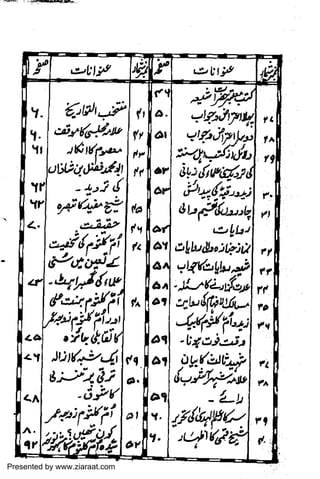 نمبر شمار عنوانات صفحہ
کتب معتبر حضرات شیعہ ۴۶
۲۷ پہلا اعتراض وجواب ۵۰
۲۸ دوسرا اعتراض وجواب ۵۱
۲۹ دلائل از کتب اہل سنت
کی تردید علماء کی زبانی ۵۳
۳۰ زید و رقیہ کی پیدائش ۵۳
۳۱ چادروں کی تقسیم والی
روایات ۵۴
۳۲ نماز جنازہ والی روایات ۵۶
۳۳ شیعہ روایات کا جواب ۵۸
۳۴ عدت گذارنے کا مسئلہ ۵۸
۳۵ مسالک الافہام کی روایت ۵۹
۳۶ زید و ام کلثوم کا بیک
وقت فوت ہونا ۵۹
۳۷ شہید ثالث کا بیان ۵۹
۳۸ علامہ شہر آشوب کی
رائے ۵۹
۳۹ سرکار علم الہدیٰ کی تحریر ۶۰
۴۰ شیخ قمی کا اظہار ۶۰
نمبر شمار عنوانات صفحہ
۴۱ منتخب التواریخ ۶۰
۴۲ علامہ مجلسی کا موقف ۶۰
۴۳ معصوم کا انکار ۶۱
۴۴ ابو محمد فضل بن شاذان
کی تردید ۶۲
۴۵ شیخ مفید کا تبصرہ ۶۲
۴۶ حقیقت ۷۰
۴۷ ام کلثوم کی شخصیت
کے تعین میں سنی
علماء کی گھبراہٹ ۷۳
۴۸ ام کلثوم بنت علی
اور ام کلثوم زوجہ عمر
کا تقابلی جائزہ ۷۵
۴۹ ایک شبہ کا ازالہ ۷۶
۵۰
۷۸
۵۱ ام کلثوم زوجہ عمر
کون تھیں؟ ۸۰
۵۲ سیدہ ام کلثوم کا ۹۲
Presented by www.ziaraat.com